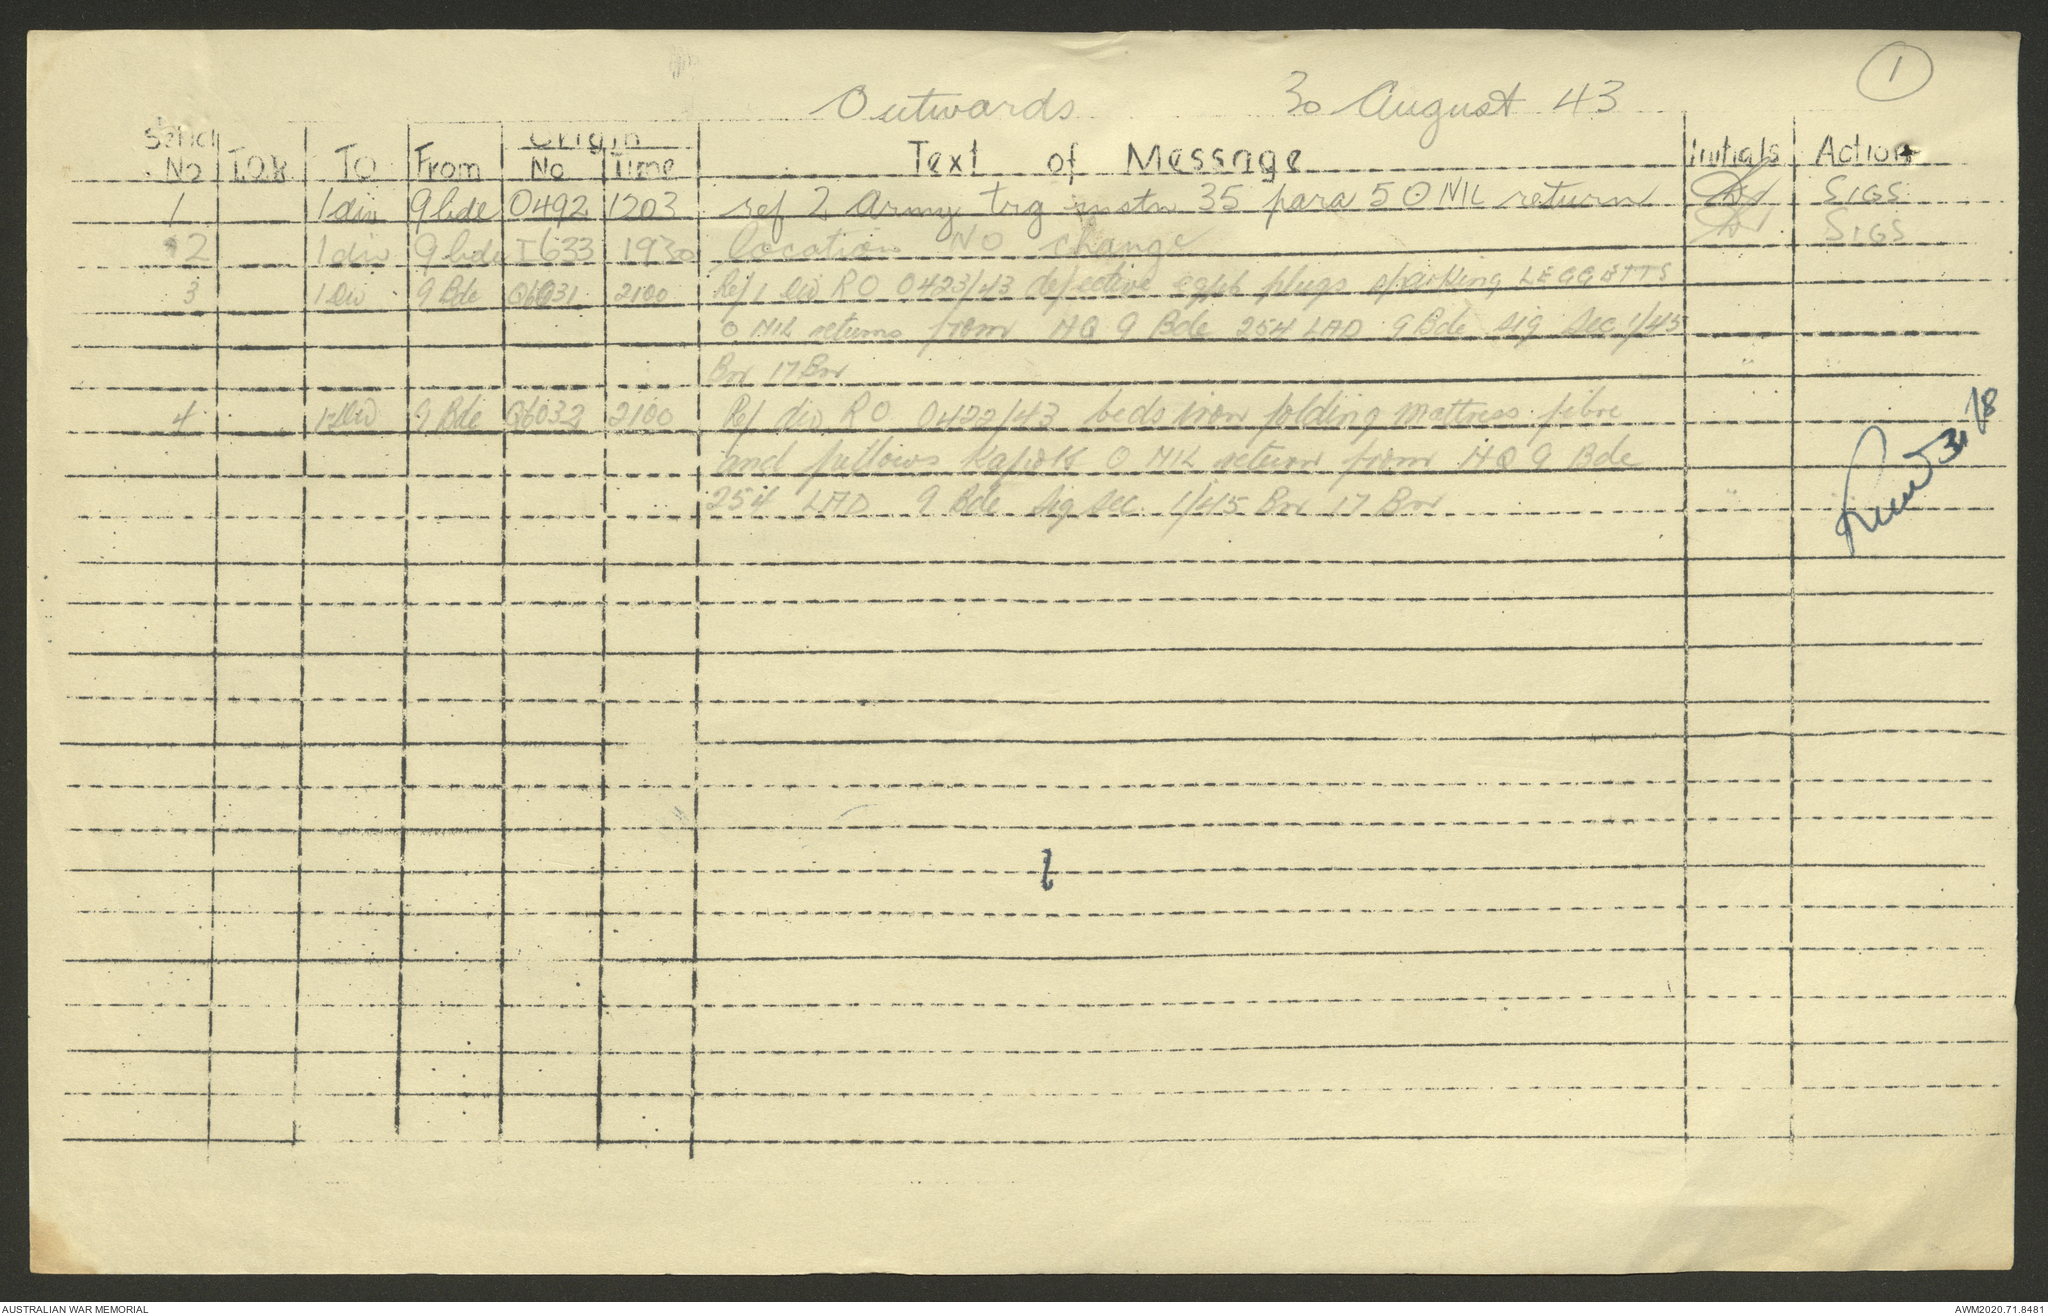 1
Outwards 30 August 43
Serial No T.O.R TO From Origin No Time Text of Message Initials Action
1 1 div 9 bde O492 1203 ref 2 Army trg instn 35 para 5 O NIL return SIGS
2 1 div 9 bde I633 1930 location NO change SIGS
3 1 Div 9 Bde Q6031 2100 Ref 1 Div R O 0423/43 defective eqpt plugs sparking LEGGETTS
O NIL returns from HQ 9 Bde 254 LAD 9 Bde sig sec 1/45
Bn 17 Bn " "
4 1 Div 9 Bde Q6032 2100 Ref div R O 0422/43 beds iron folding mattress fibre
and pillows Kapok O NIL return from HQ 9 Bde
254 LAD 9 Bde sig sec 1/45 Bn 17 Bn " "
31/8
AUSTRALIAN WAR MEMORIAL AWM2020.71.8481